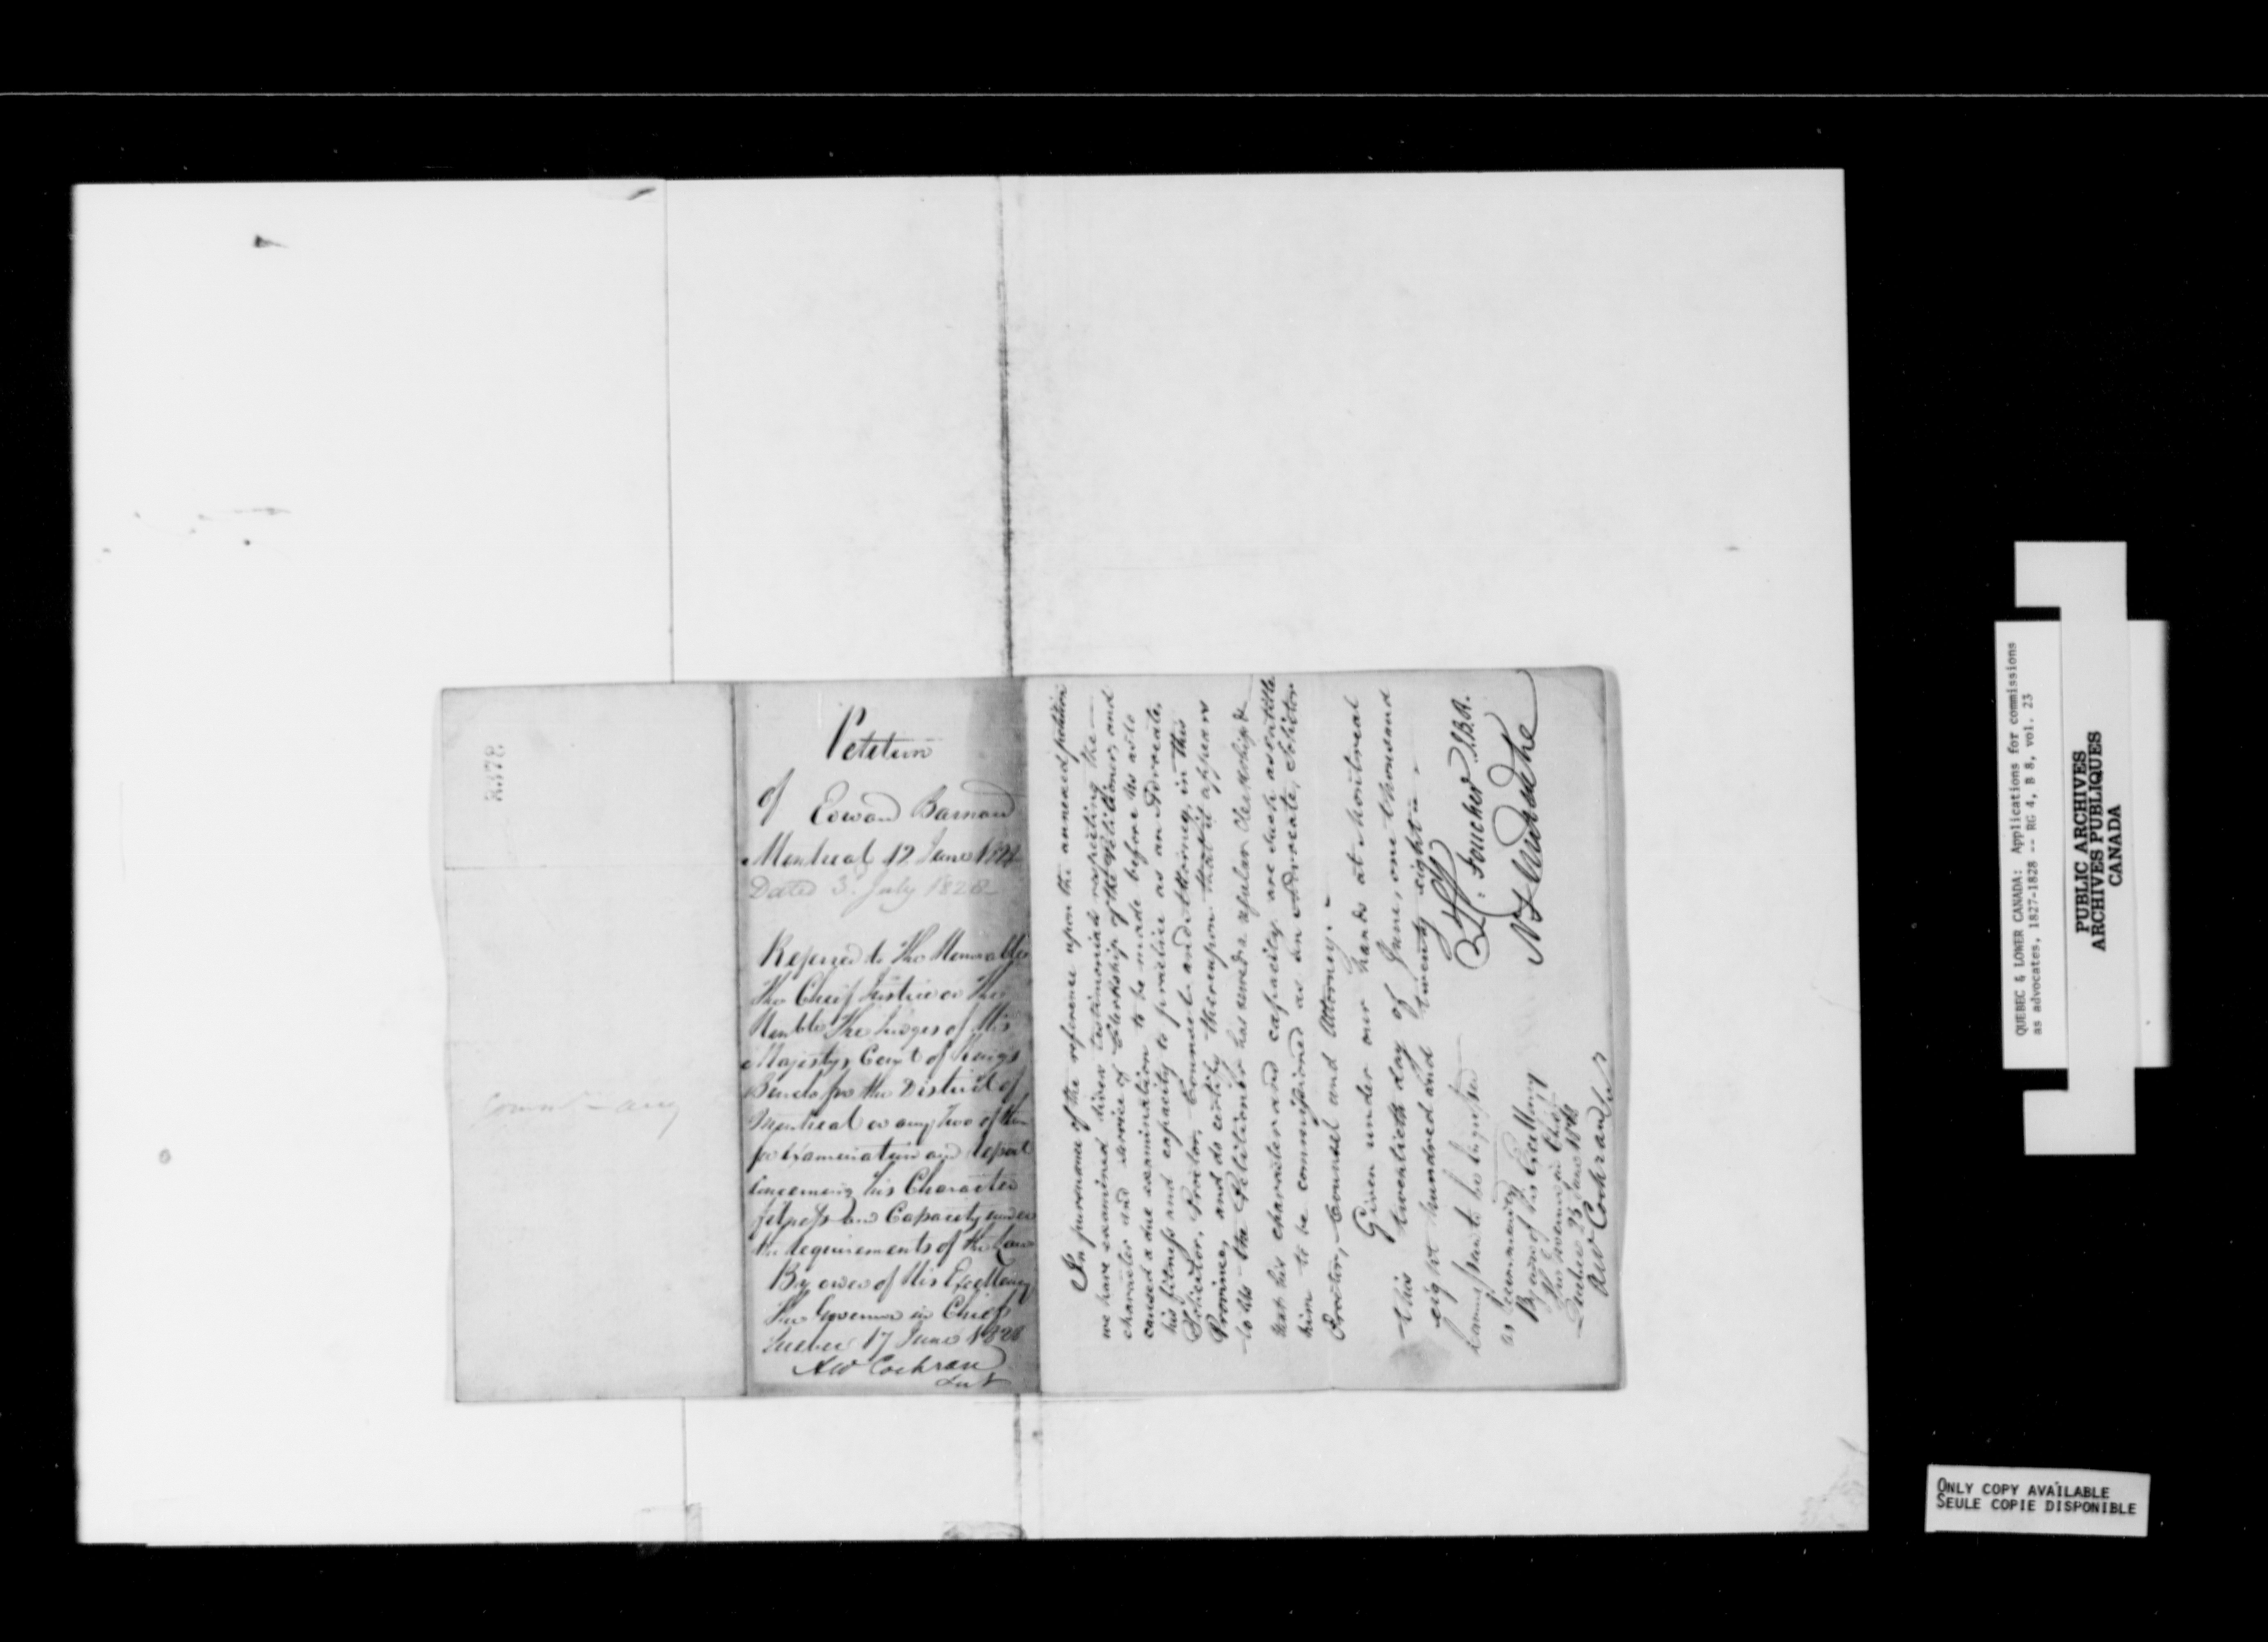 8378
Petition
of Edward Barnard
Montreal 12 June 1828
Dated 3. July 1828
Referred to The Honorable
The Cheif Justice or the
Honble. The Judges of His
Majestys Court of King's
Bench for the District of
Montreal or any two of them
for Examination and report
concerning his Character
fitness and Capacity under
the requirements of the Law
By order of His Excellency
The Governor in Chief
Quebec 17 June 1828
AW Cochran
Secy
In pursuance of the reference upon the annexed petition
we have examined divers testimonials respecting the
character and service of Clerkship of the Petitioner, and
caused a due examination to be made before us as to
his fitness and capacity to practice as an Advocate,
Solicitor, Proctor, Counsel and Attorney, in this
Province, and do certify thereupon that it appears
to us the Petitioner has served a regular Clerkship &
that his character and capacity are such as entitle
him to be commissioned as an Advocate, Solicitor
Proctor, Counsel and Attorney.
Given under our hands at Montreal
this twentieth day of June, one thousand
eight hundred and twenty eight
L. C. Foucher J.B.R.
Commission to be
as recommended
By order of His Excellency
The Governor in Chief
Quebec 25 June 1828
AW Cochran Secy
QUEBEC & LOWER CANADA: Applications for commissions
as advocates, 1827-1828 -- RG 4, B 8, vol. 23
PUBLIC ARCHIVES
ARCHIVES PUBLIQUES
CANADA
ONLY COPY AVAILABLE
SEULE COPIE DISPONIBLE